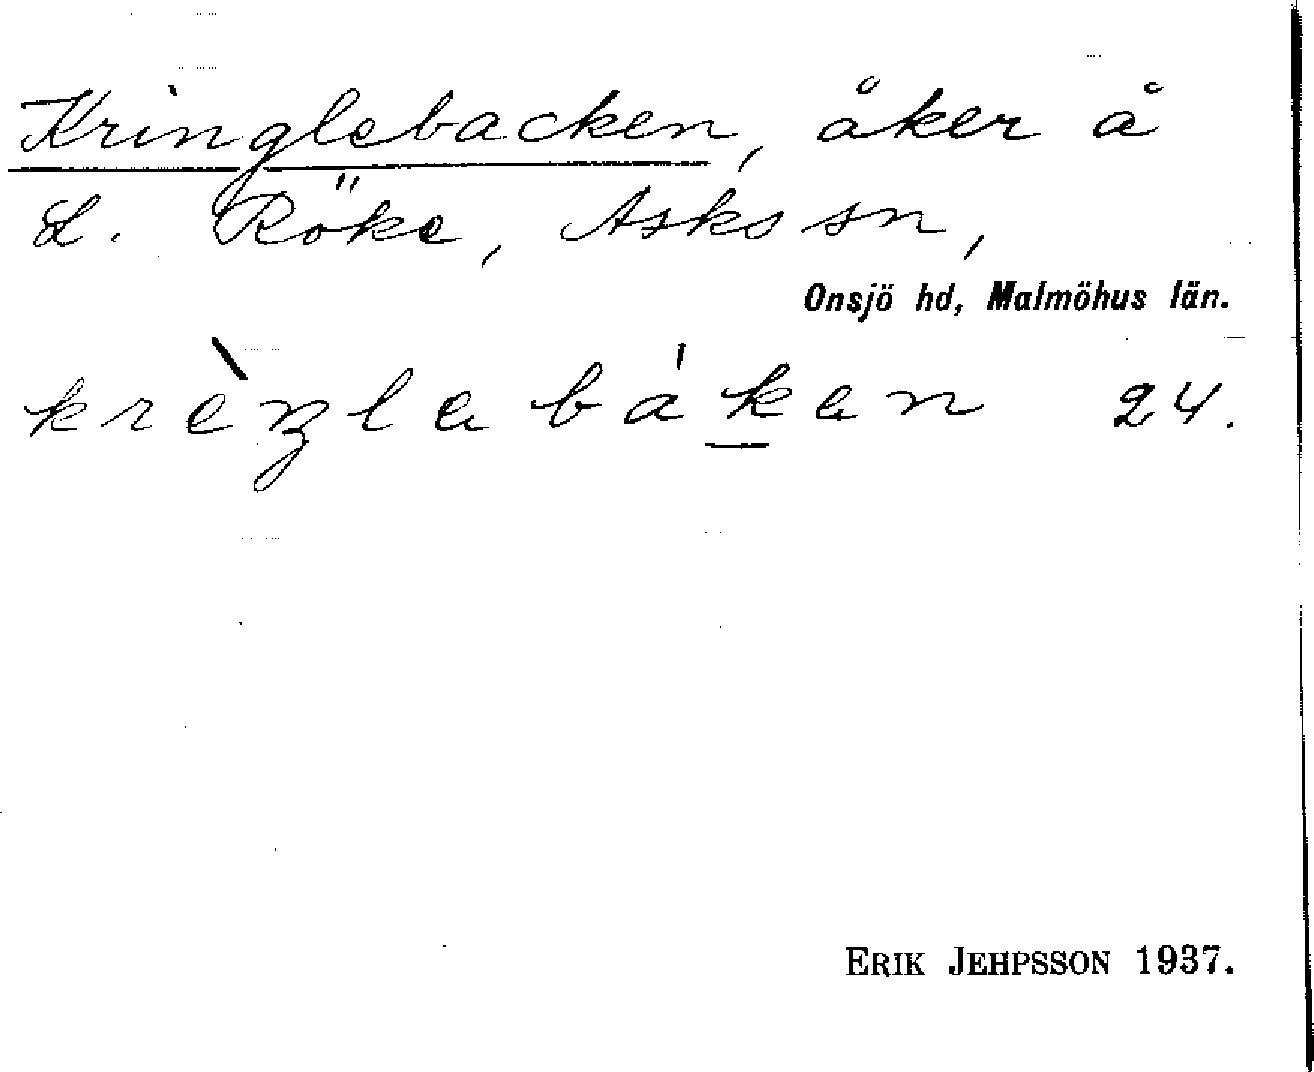 Kringlebacken, åker å
L. Röke, Asks sn,
Onsjö hd, Malmöhus län.
krèŋlebáken 24.
ERIK JEHPSSON 1937.